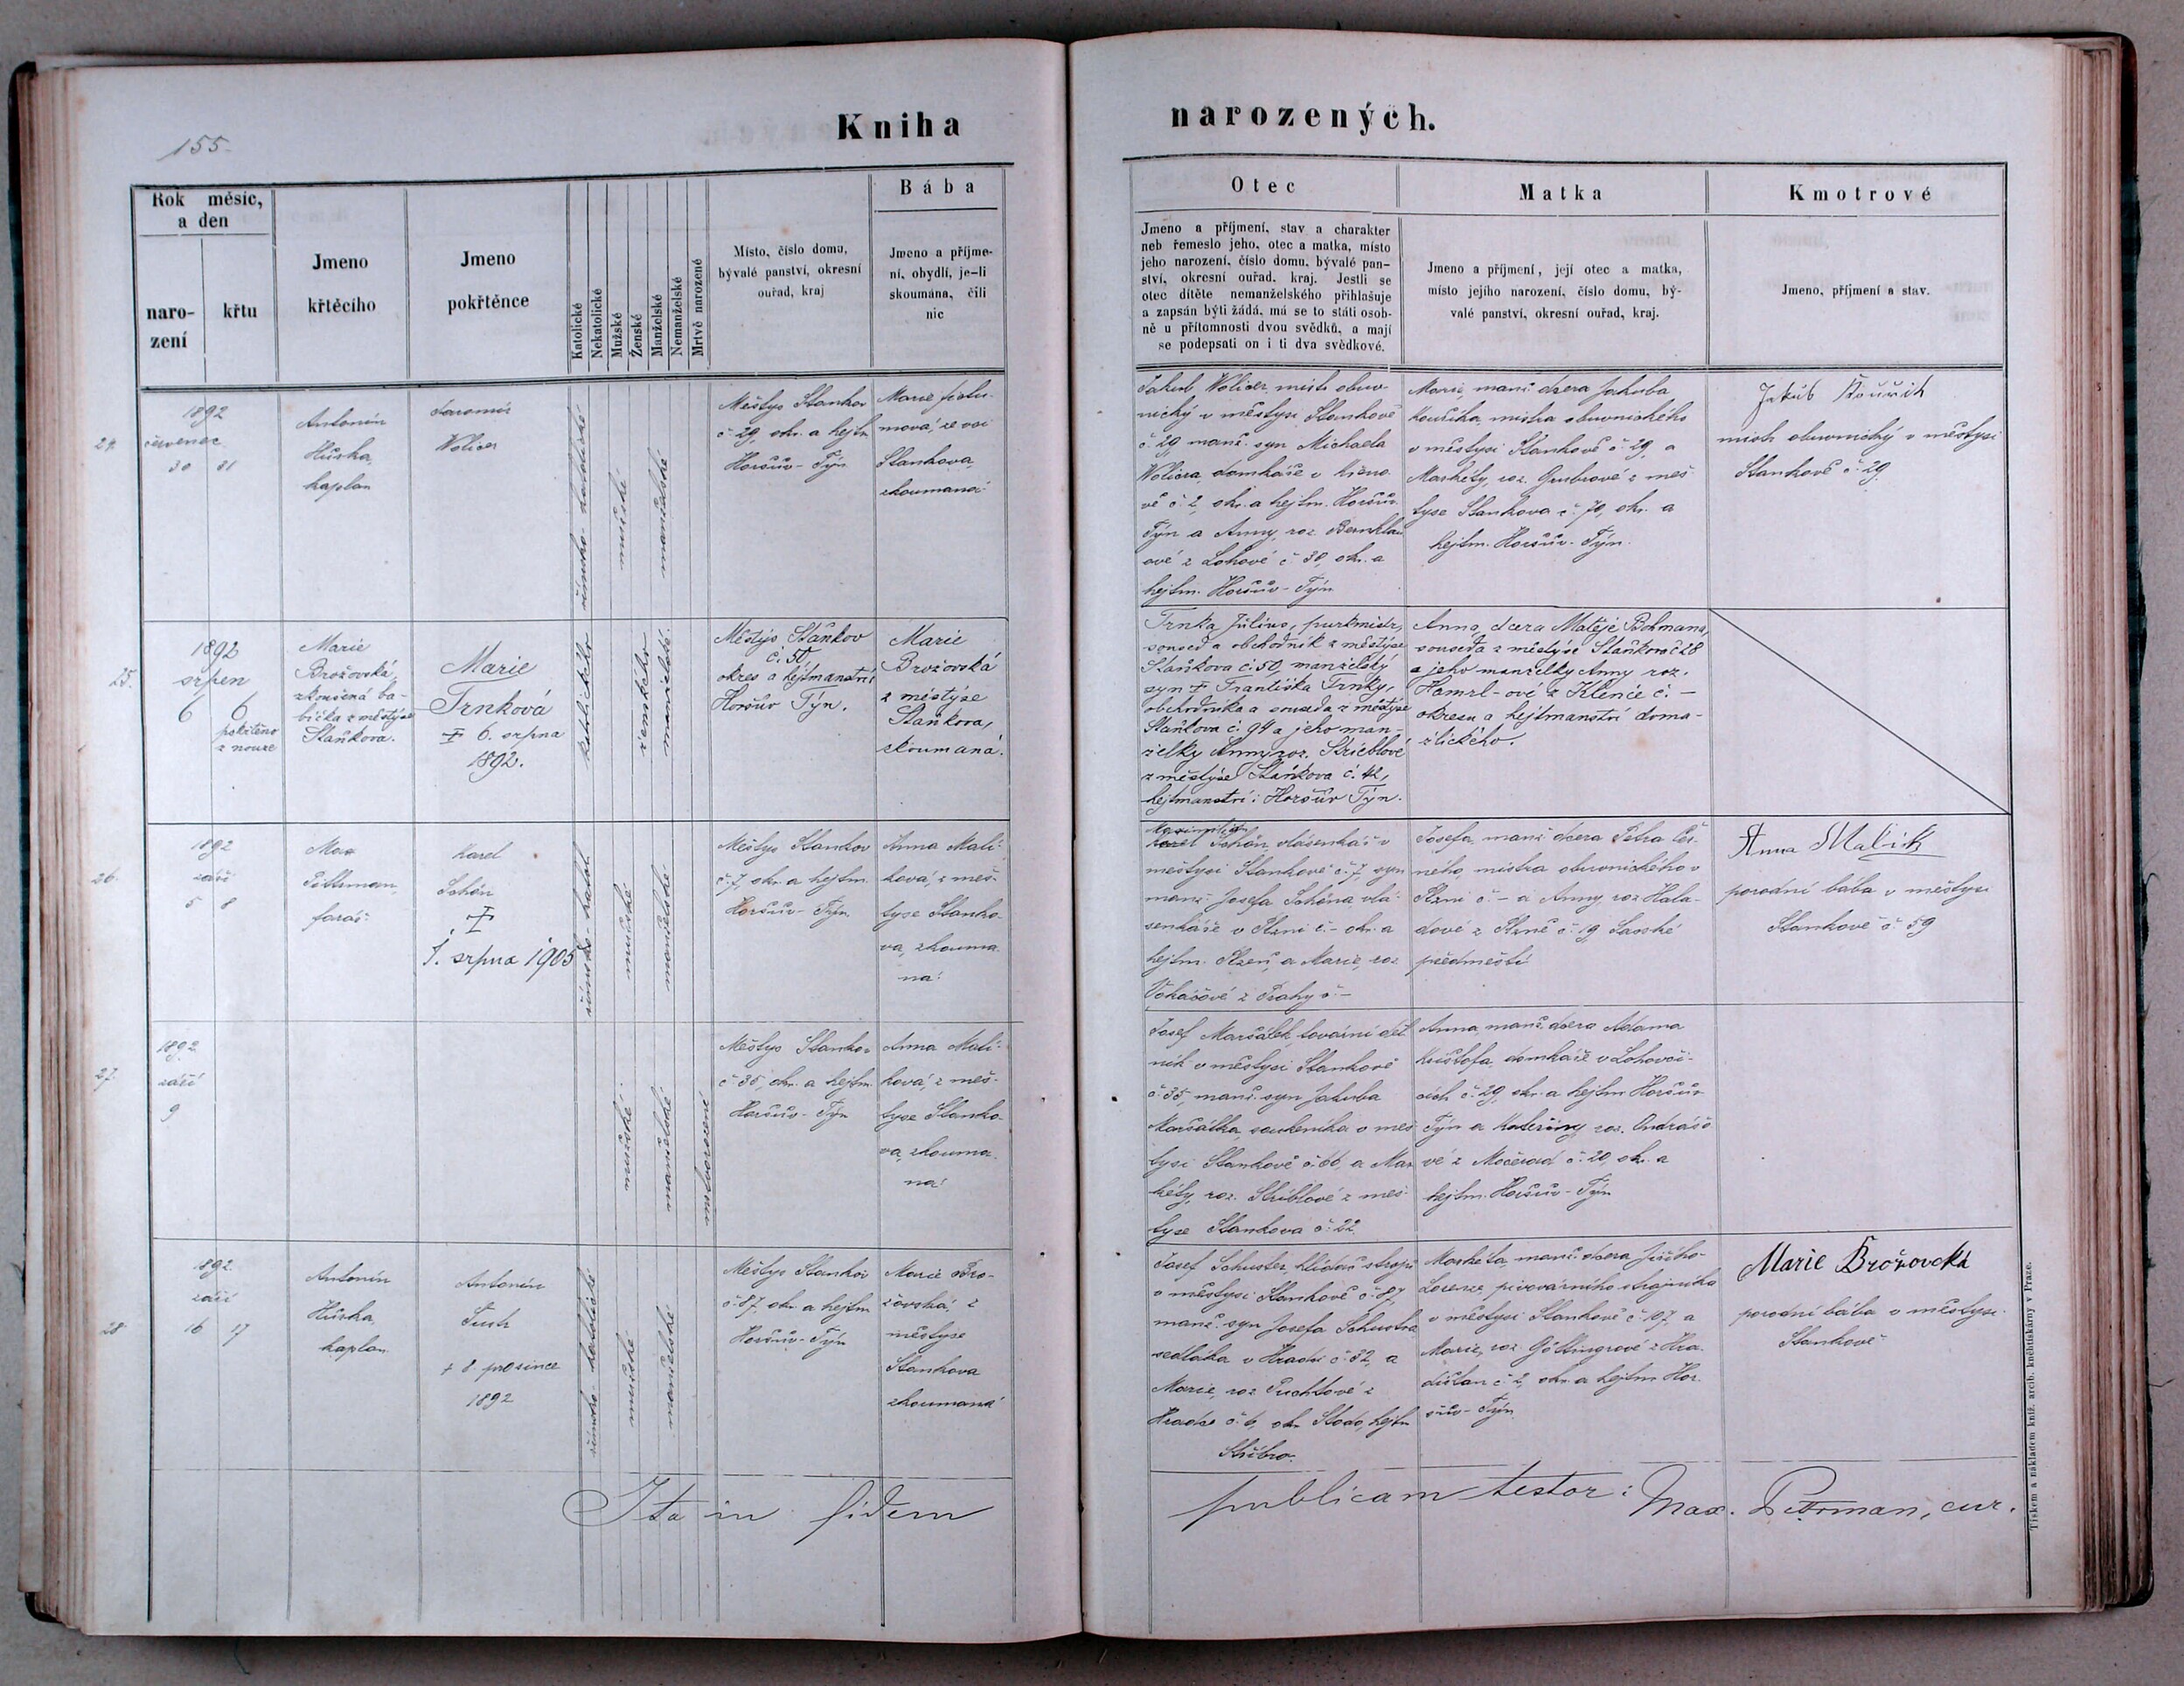 155.
Kniha
narozených.
Rok měsíc,
a den
naro-
zení
křtu
Jmeno
křtěcího
Jmeno
pokřtěnce
Katolické
Nekatolické
Mužské
Ženské
Manželské
Nemanželské
Mrtvě narozené
Místo, číslo domu,
bývalé panství, okresní
ouřad, kraj
Bába
Jmeno a příjme-
ní, obydlí, je-li
skoumána, čili
nic
Otec
Jmeno a příjmení, stav a charakter
neb řemeslo jeho, otec a matka, místo
jeho narození, číslo domu, bývalé pan-
ství, okresní ouřad, kraj. Jestli se
otec dítěte nemanželského přihlašuje
a zapsán býti žádá, má se to státi osob-
ně u přítomnosti dvou svědků, a mají
se podepsati on i ti dva svědkové.
Matka
Jmeno a příjmení, její otec a matka,
místo jejího narození, číslo domu, bý-
valé panství, okresní ouřad, kraj.
Kmotrové
Jmeno, příjmení a stav.
24.
1892
červenec
30 31
Antonín
Hůrka,
kaplan
Jaromír
Wolicer
římsko-katolické
mužské
manželské
Městys Stankov
č 29, okr. a hejtm.
Horšův-Týn
Marie
ze vsi
Stankova,
zkoumaná
Jakub Wolicer, mistr obuv-
nický v městysi Stankově
č 29, manž. syn Michaela
Wolicra, domkáře v
č. 2, okr. a hejtm. Horšův
Týn a Anny, roz.
z Lohové č 30, okr. a
hejtm. Horšův-Týn
Marie, manž. dcera Jakuba
Kouřika, mistra obuvnického
v městysi Stankově č. 29, a
Markéty, roz. z měs-
tyse Stankova č. 70, okr. a
hejtm. Horšův-Týn.
Jakub Kouřik
mistr obuvnický v městysi
Stankově č. 29.
25.
1892
srpen
6 6
pokřtěno
z nouze
Marie
Brožovská,
zkoušená ba-
bička z městýse
Staňkova.
Marie
Trnková
† 6. srpna
1892.
katolického
ženského
manželské
Městýs Staňkov
č. 50,
okres a hejtmanství
Horšův Týn.
Marie
Brožovská
z městýse
Staňkova,
skoumaná.
Trnka Július, purkmistr,
soused a obchodník z městýse
Staňkova č. 50, manželský
syn † Františka Trnky,
obchodníka a souseda z městýse
Staňkova č. 94 a jeho man-
želky Anny roz. Stříeblové
z městýse Staňkova č. 42,
hejtmanství: Horšův Týn.
Anna, dcera Matěje Bohmana,
souseda z městýse Staňkova č 28
a jeho manželky Anny roz.
Hamrl-ové z Klenče č. -
okresu a hejtmanství doma-
žlického.
26.
1892
září
5 8
Max
Pittrman,
farář
Karel
Schön
†
1. srpna 1905
římsko-katol.
mužské
manželské
Městys Stankov
č. 7, okr. a hejtm.
Horšův-Týn
Anna Malí-
ková, z měs-
tyse Stanko-
va, zkouma-
ná.
Maximilian
Karel Schön, vlásenkář v
městysi Stankově č. 7, syn
manž. Josefa Schöna, vlá-
senkáře v Plzni č. - okr. a
hejtm. Plzeň, a Marie, roz.
z Prahy č. -
Josefa, manž. dcera Petra Čer-
ného, mistra obuvnického v
Plzni č. - a Anny, roz. Hala-
dové z Plzně č. 19, Saské
předměstí
Anna Malik
porodní bába v městysi
Stankově č. 59
27.
1892
září
9
mužské
manželské
mrtvorozené
Městys Stankov
č. 35, okr. a hejtm.
Horšův-Týn
Anna Malí-
ková, z měs-
tyse Stanko-
va, zkouma-
ná.
Josef Maršálek, tovární děl-
ník v městysi Stankově
č. 35, manž. syn Jakuba
Maršálka, soukeníka v měs-
tysi Stankově č. 66, a Mar-
kéty, roz. Stříblové z měs-
tyse Stankova č. 22.
Anna, manž. dcera Adama
Krištofa, domkáře v Lohovči-
cích č. 29, okr. a hejtm. Horšův
Týn a Kateřiny, roz. Ondrášo-
vé z Močerad č. 20, okr. a
hejtm. Horšův-Týn
28
1892.
září
16 17
Antonín
Hůrka,
kaplan
Antonín
† 8. prosince
1892
římsko-katolické
mužské
manželské
Městys Stankov
č. 87, okr. a hejtm.
Horšův-Týn
Marie Bro-
žovská, z
městyse
Stankova
zkoumaná
Josef Schuster, hlídač strojů
v městysi Stankově č. 87,
manž. syn Josefa Schustra
sedláka v Hradci č. 32, a
Marie, roz. Puchtové z
Hradce č. 6, okr. Stodo, hejtm
Stříbro.
Markéta, manž. dcera Jiřího
Lorenze, pivovarního strojníka
v městysi Stankově č. 107, a
Marie, roz. Göttingrové z Hra-
dištan č. 2, okr. a hejtm. Hor-
šův-Týn
Marie Brožovcká
porodní bába v městysi
Stankově
Ita in fidem
publicam testor: Max. Pittrman, cur.
Tiskem a nákladem kníž. arcib. kněhtiskárny v Praze.